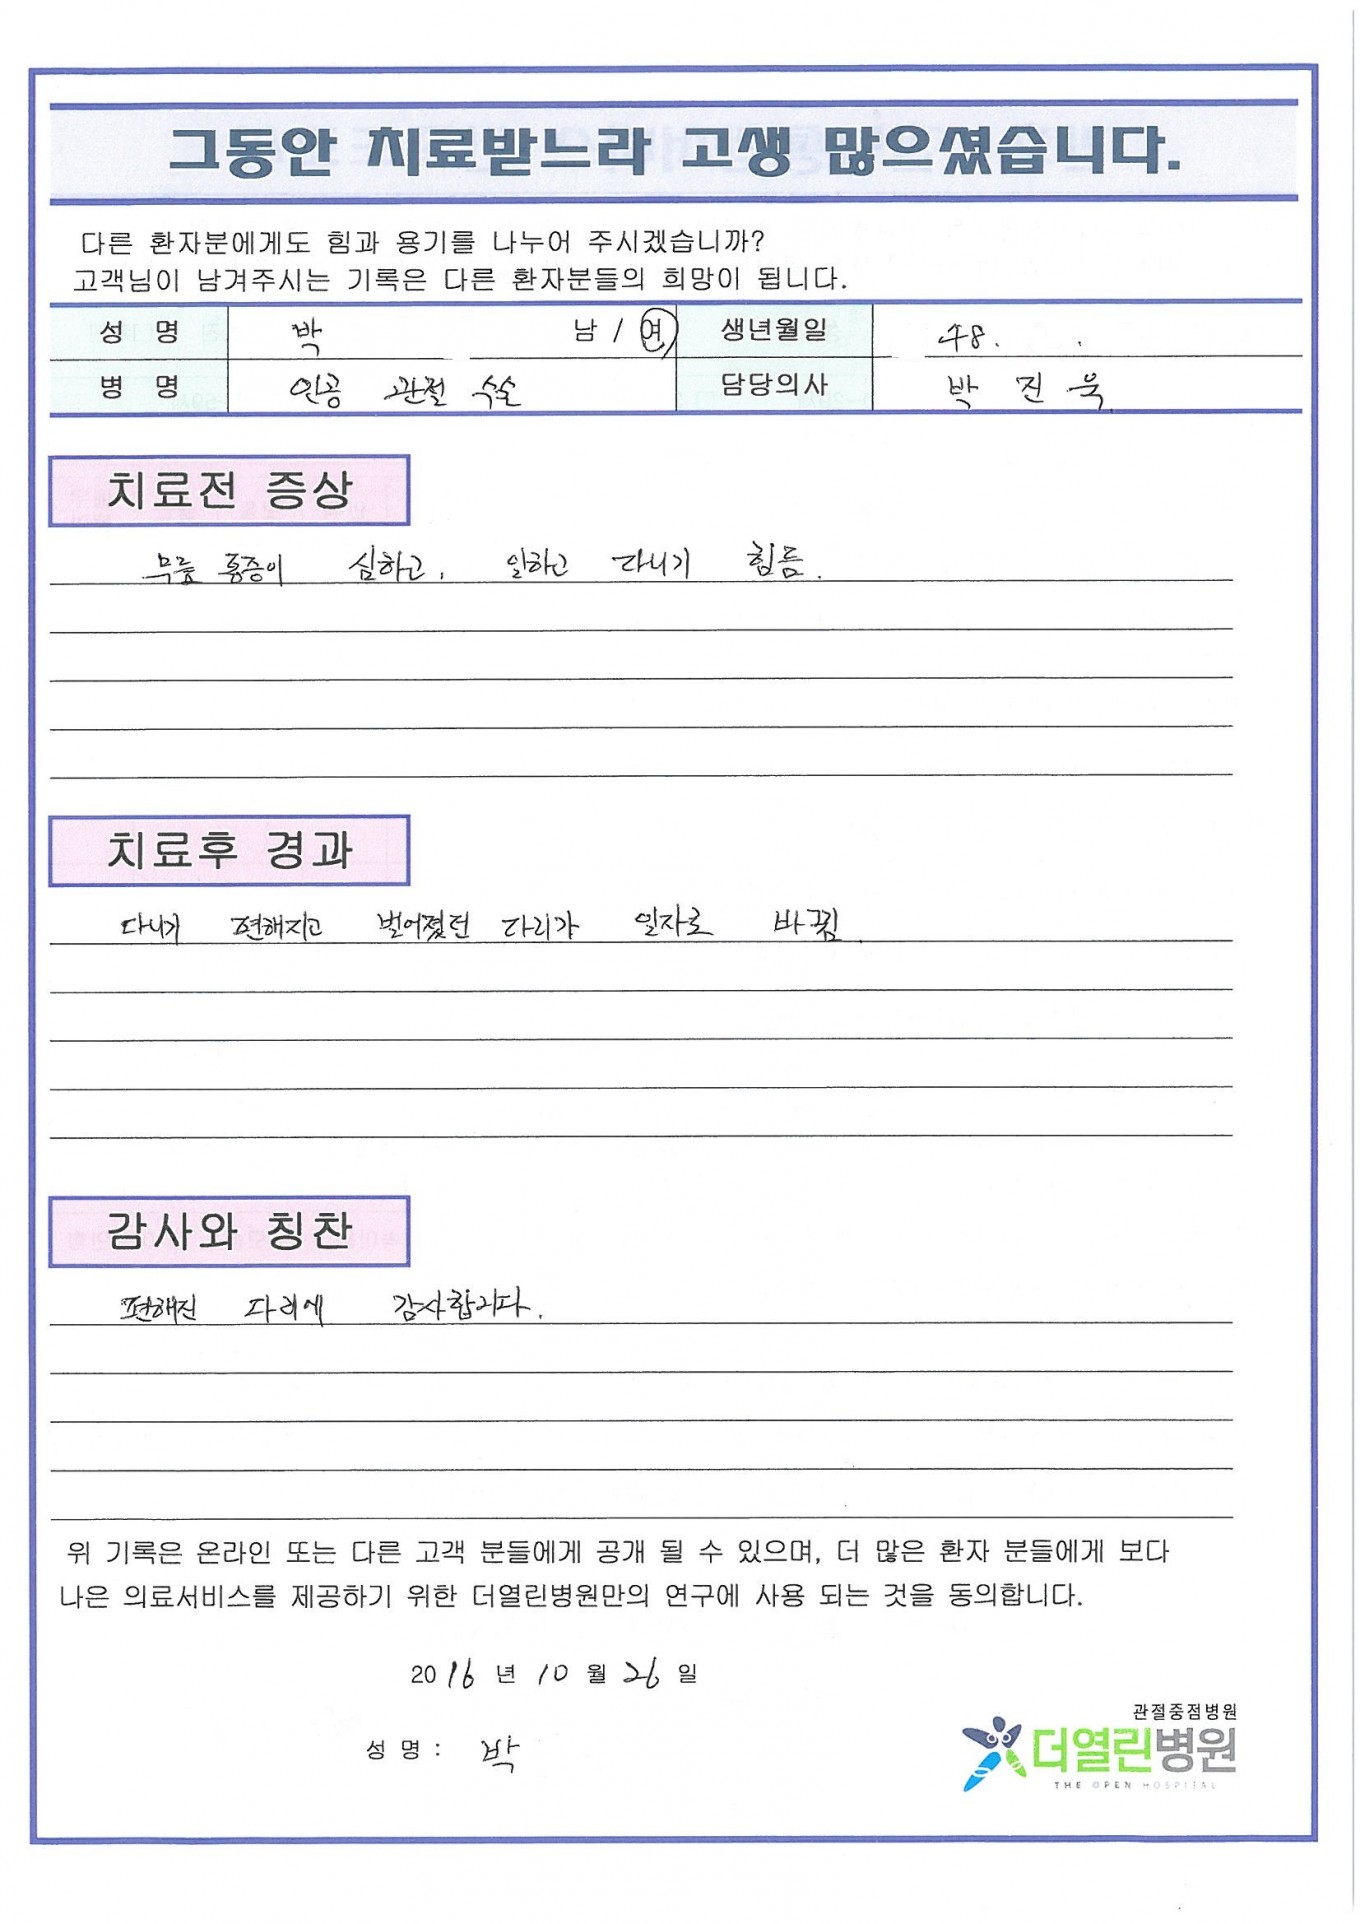 그동안 치료받느라 고생 많으셨습니다.
다른 환자분에게도 힘과 용기를 나누어 주시겠습니까?
고객님이 남겨주시는 기록은 다른 환자분들의 희망이 됩니다.
성 명 박 남 / 여 생년월일 48. .
병 명 인공 관절 수술 담당의사 박 진 욱
치료전 증상
무릎 통증이 심하고, 일하고 다니기 힘듬.
치료후 경과
다니기 편해지고 벌어졌던 다리가 일자로 바뀜.
감사와 칭찬
편해진 다리에 감사합니다.
위 기록은 온라인 또는 다른 고객 분들에게 공개 될 수 있으며, 더 많은 환자 분들에게 보다
나은 의료서비스를 제공하기 위한 더열린병원만의 연구에 사용 되는 것을 동의합니다.
2016 년 10 월 26 일
성 명 : 박
관절중점병원
더열린병원
THE OPEN HOSPITAL